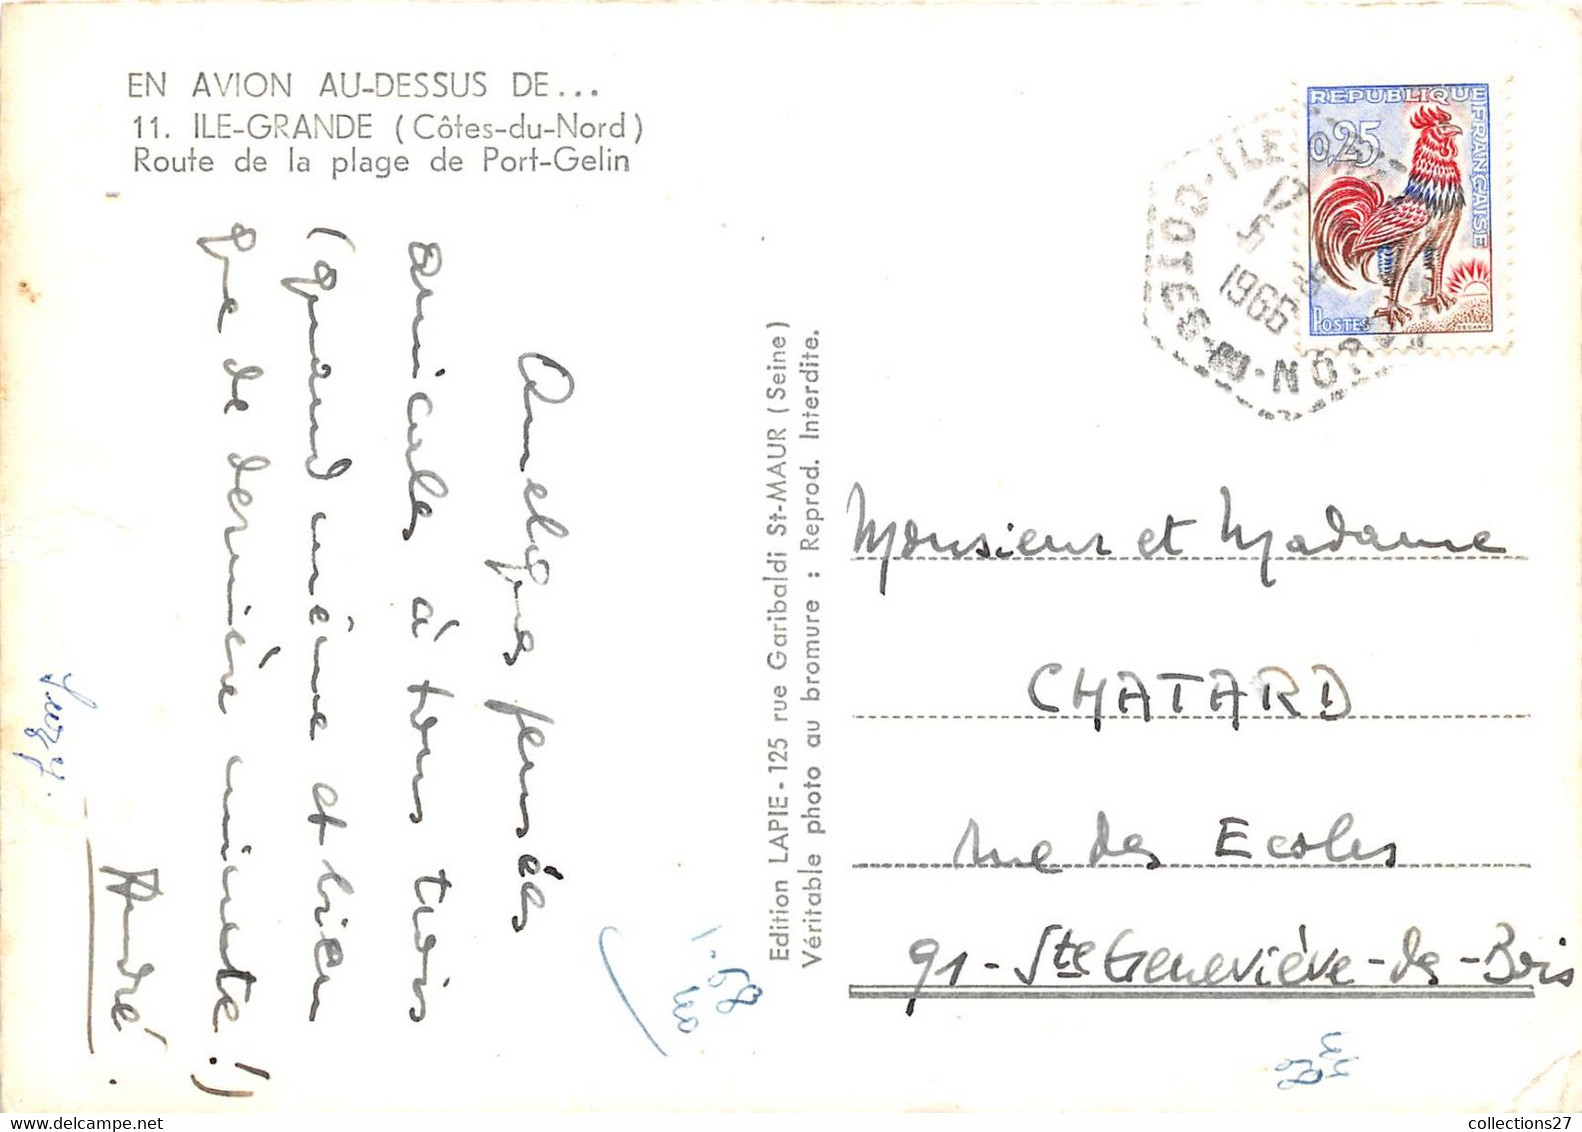 EN AVION AU-DESSUS DE...
11. ILE-GRANDE (Côtes-du-Nord)
Route de la plage de Port-Gelin
Quelques pensées
amicales à tous trois
(quand même et bien
que de dernière minute!)
André.
Suzy.
Edition LAPIE - 125 rue Garibaldi St-MAUR (Seine)
Véritable photo au bromure : Reprod. Interdite.
REPUBLIQUE FRANÇAISE
0,25
POSTES
DECARIS
ILE
17
5
1966
COTES-DU-NORD
Monsieur et Madame
CHATARD
rue des Ecoles
91-Ste Geneviève-des-Bois
1-68
collections27